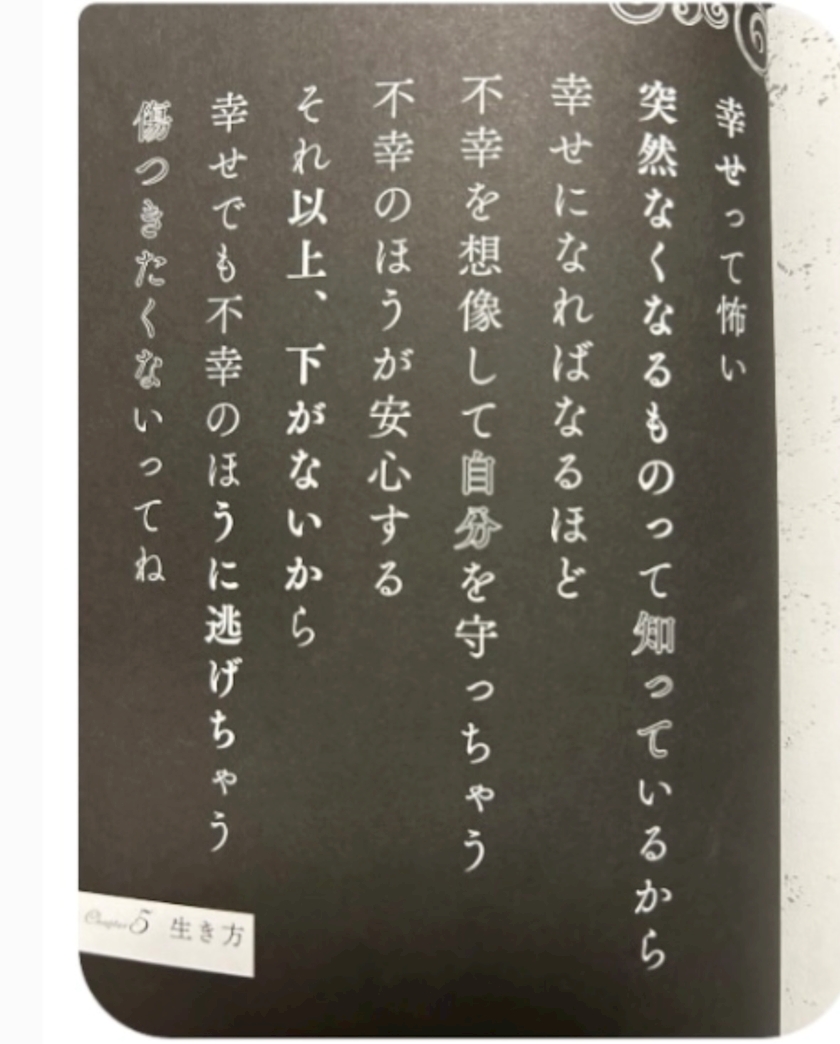 幸せって怖い
突然なくなるものって知っているから
幸せになればなるほど
不幸を想像して自分を守っちゃう
不幸のほうが安心する
それ以上、下がないから
幸せでも不幸のほうに逃げちゃう
傷つきたくないってね
Chapter 5 生き方